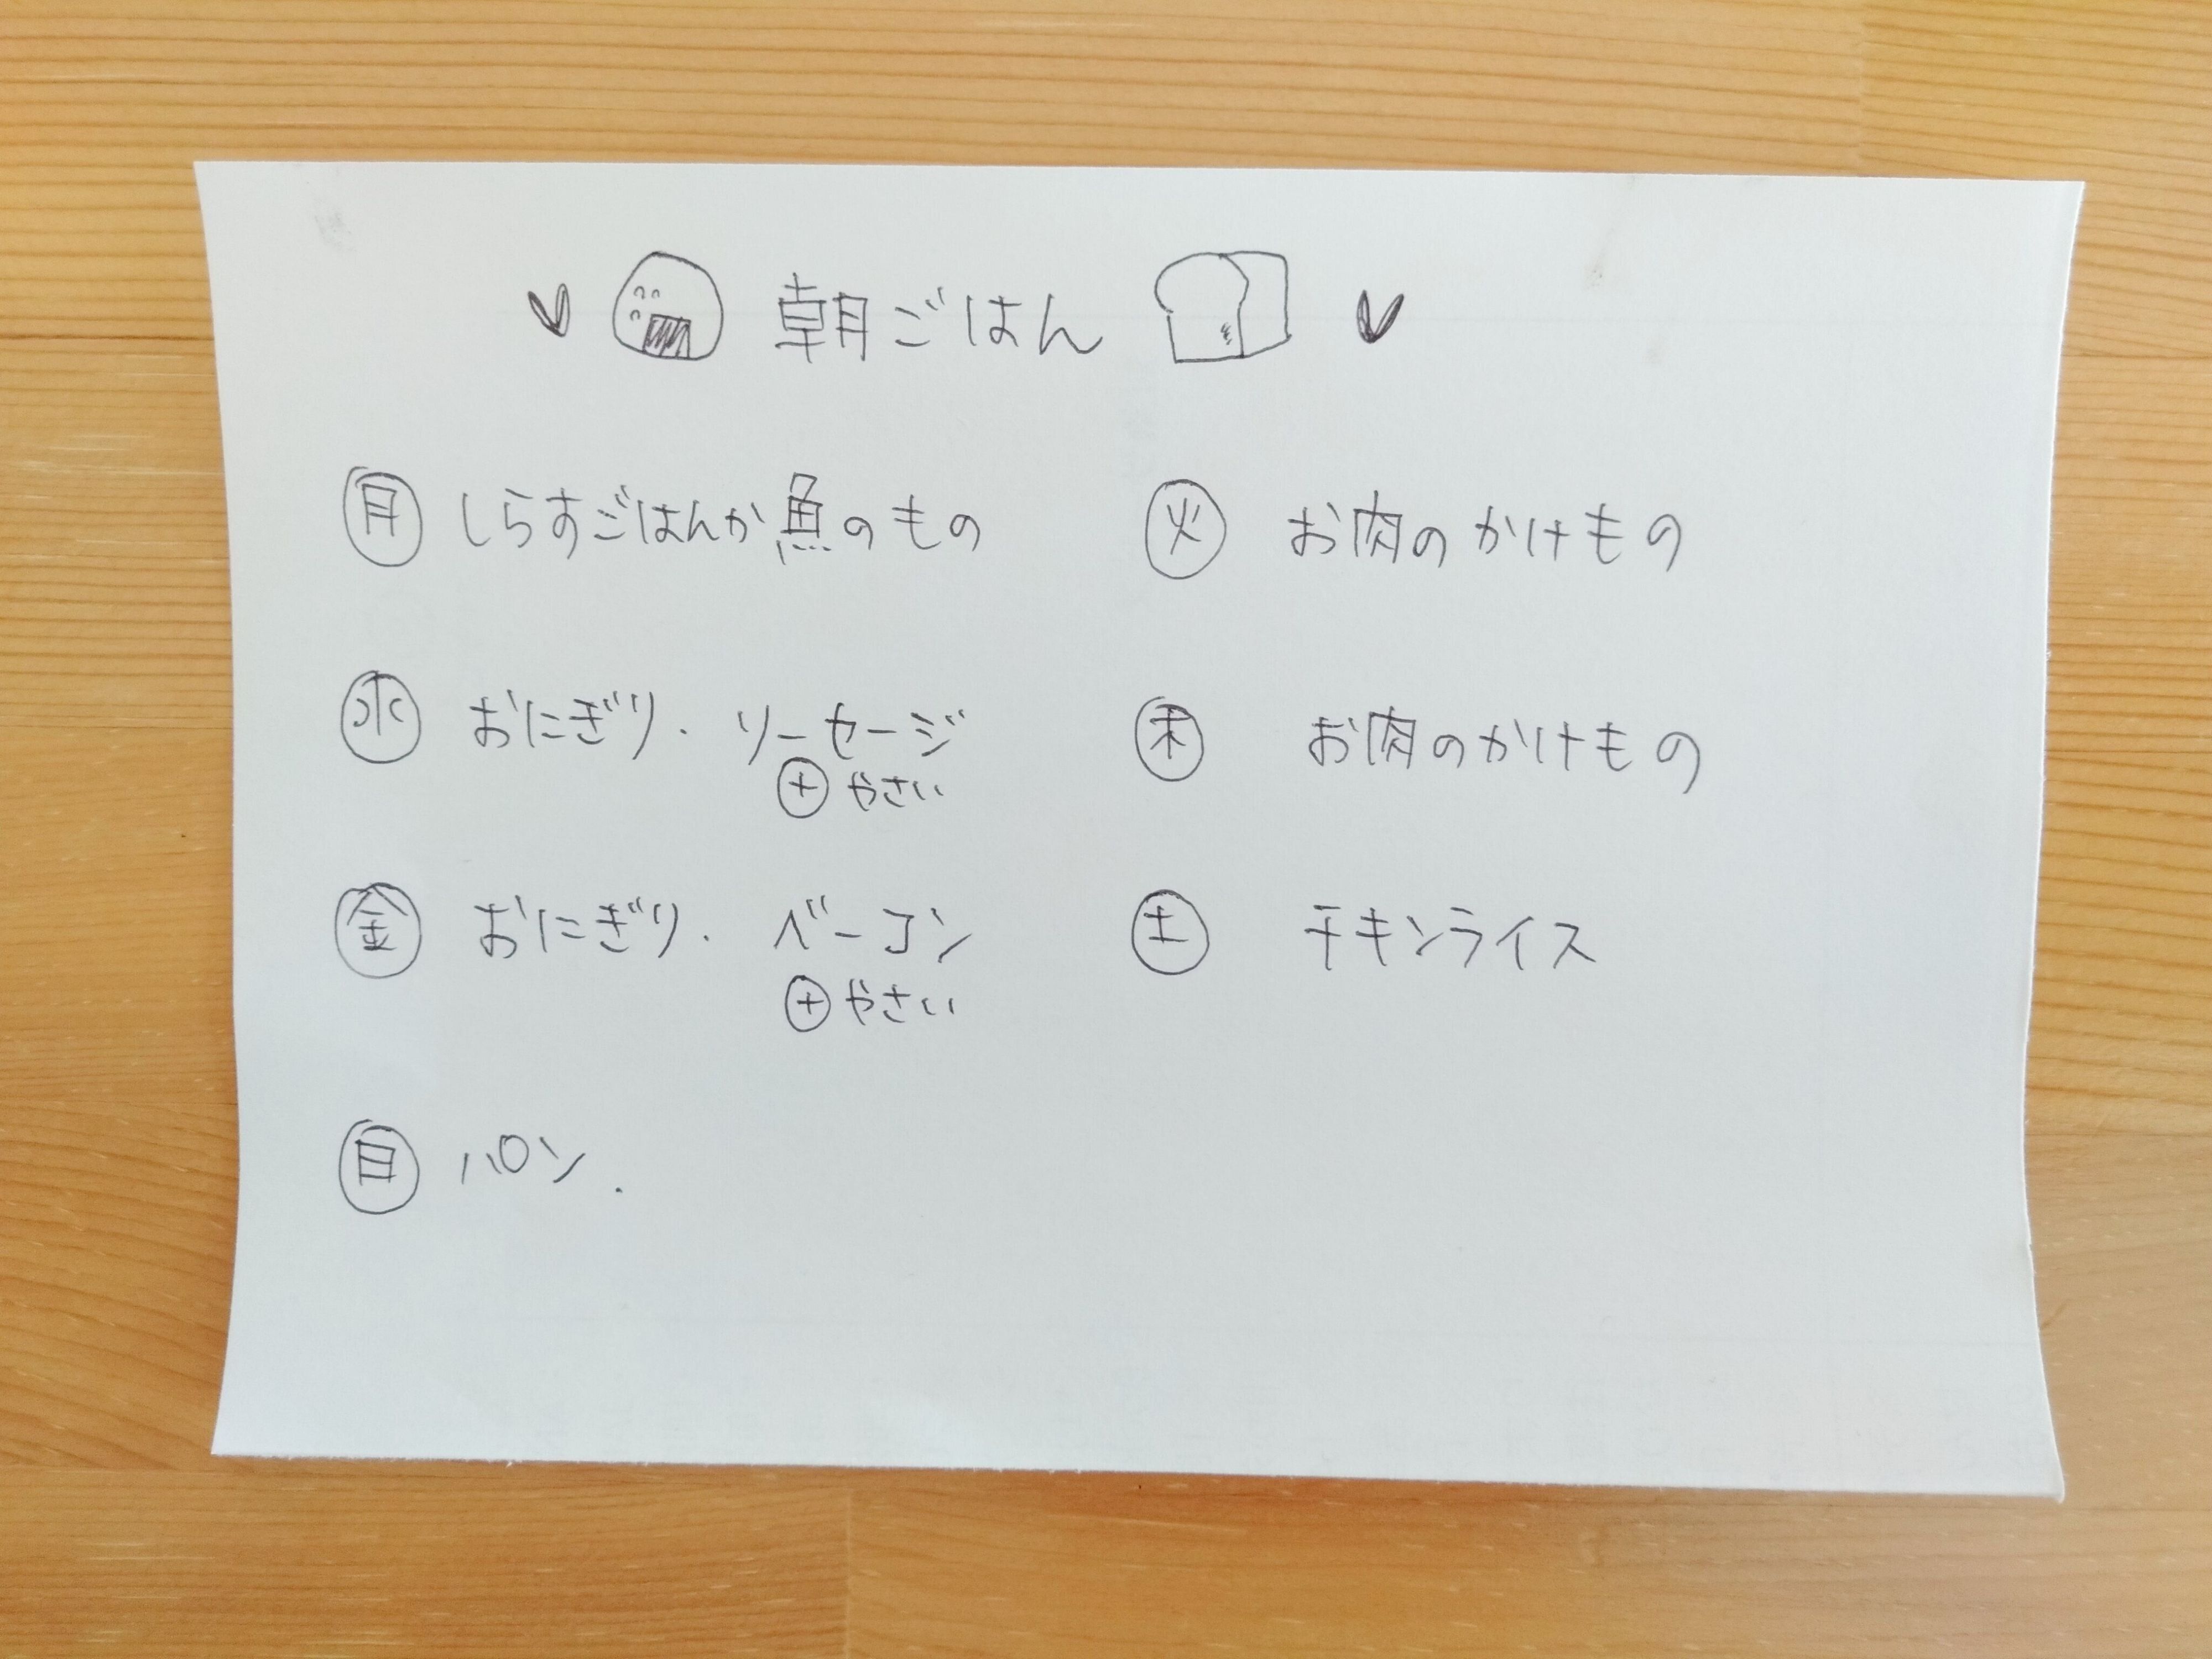 朝ごはん
月 しらすごはんか魚のもの
火 お肉のかけもの
水 おにぎり・ソーセージ
+ やさい
木 お肉のかけもの
金 おにぎり・ベーコン
+ やさい
土 チキンライス
日 パン.